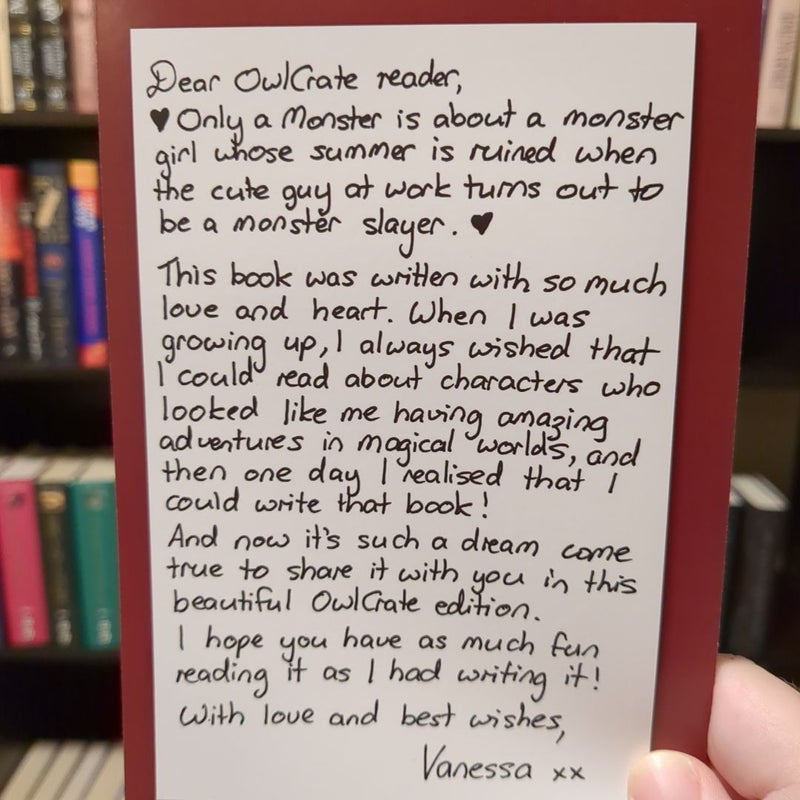 Dear OwlCrate reader,
♥ Only a Monster is about a monster
girl whose summer is ruined when
the cute guy at work turns out to
be a monster slayer. ♥
This book was written with so much
love and heart. When I was
growing up, I always wished that
I could read about characters who
looked like me having amazing
adventures in magical worlds, and
then one day I realised that I
could write that book!
And now it's such a dream come
true to share it with you in this
beautiful OwlCrate edition.
I hope you have as much fun
reading it as I had writing it!
With love and best wishes,
Vanessa xx